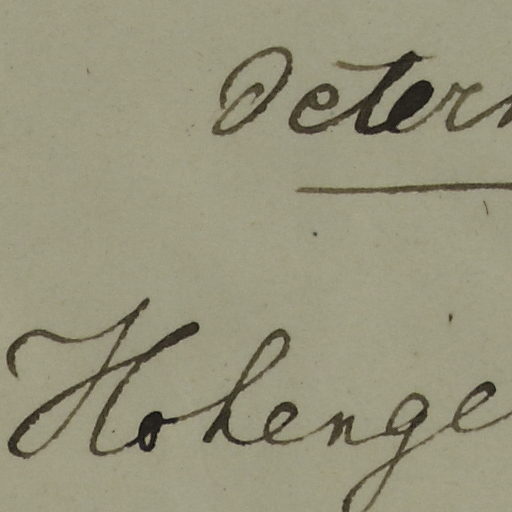 Deter
Hohenge